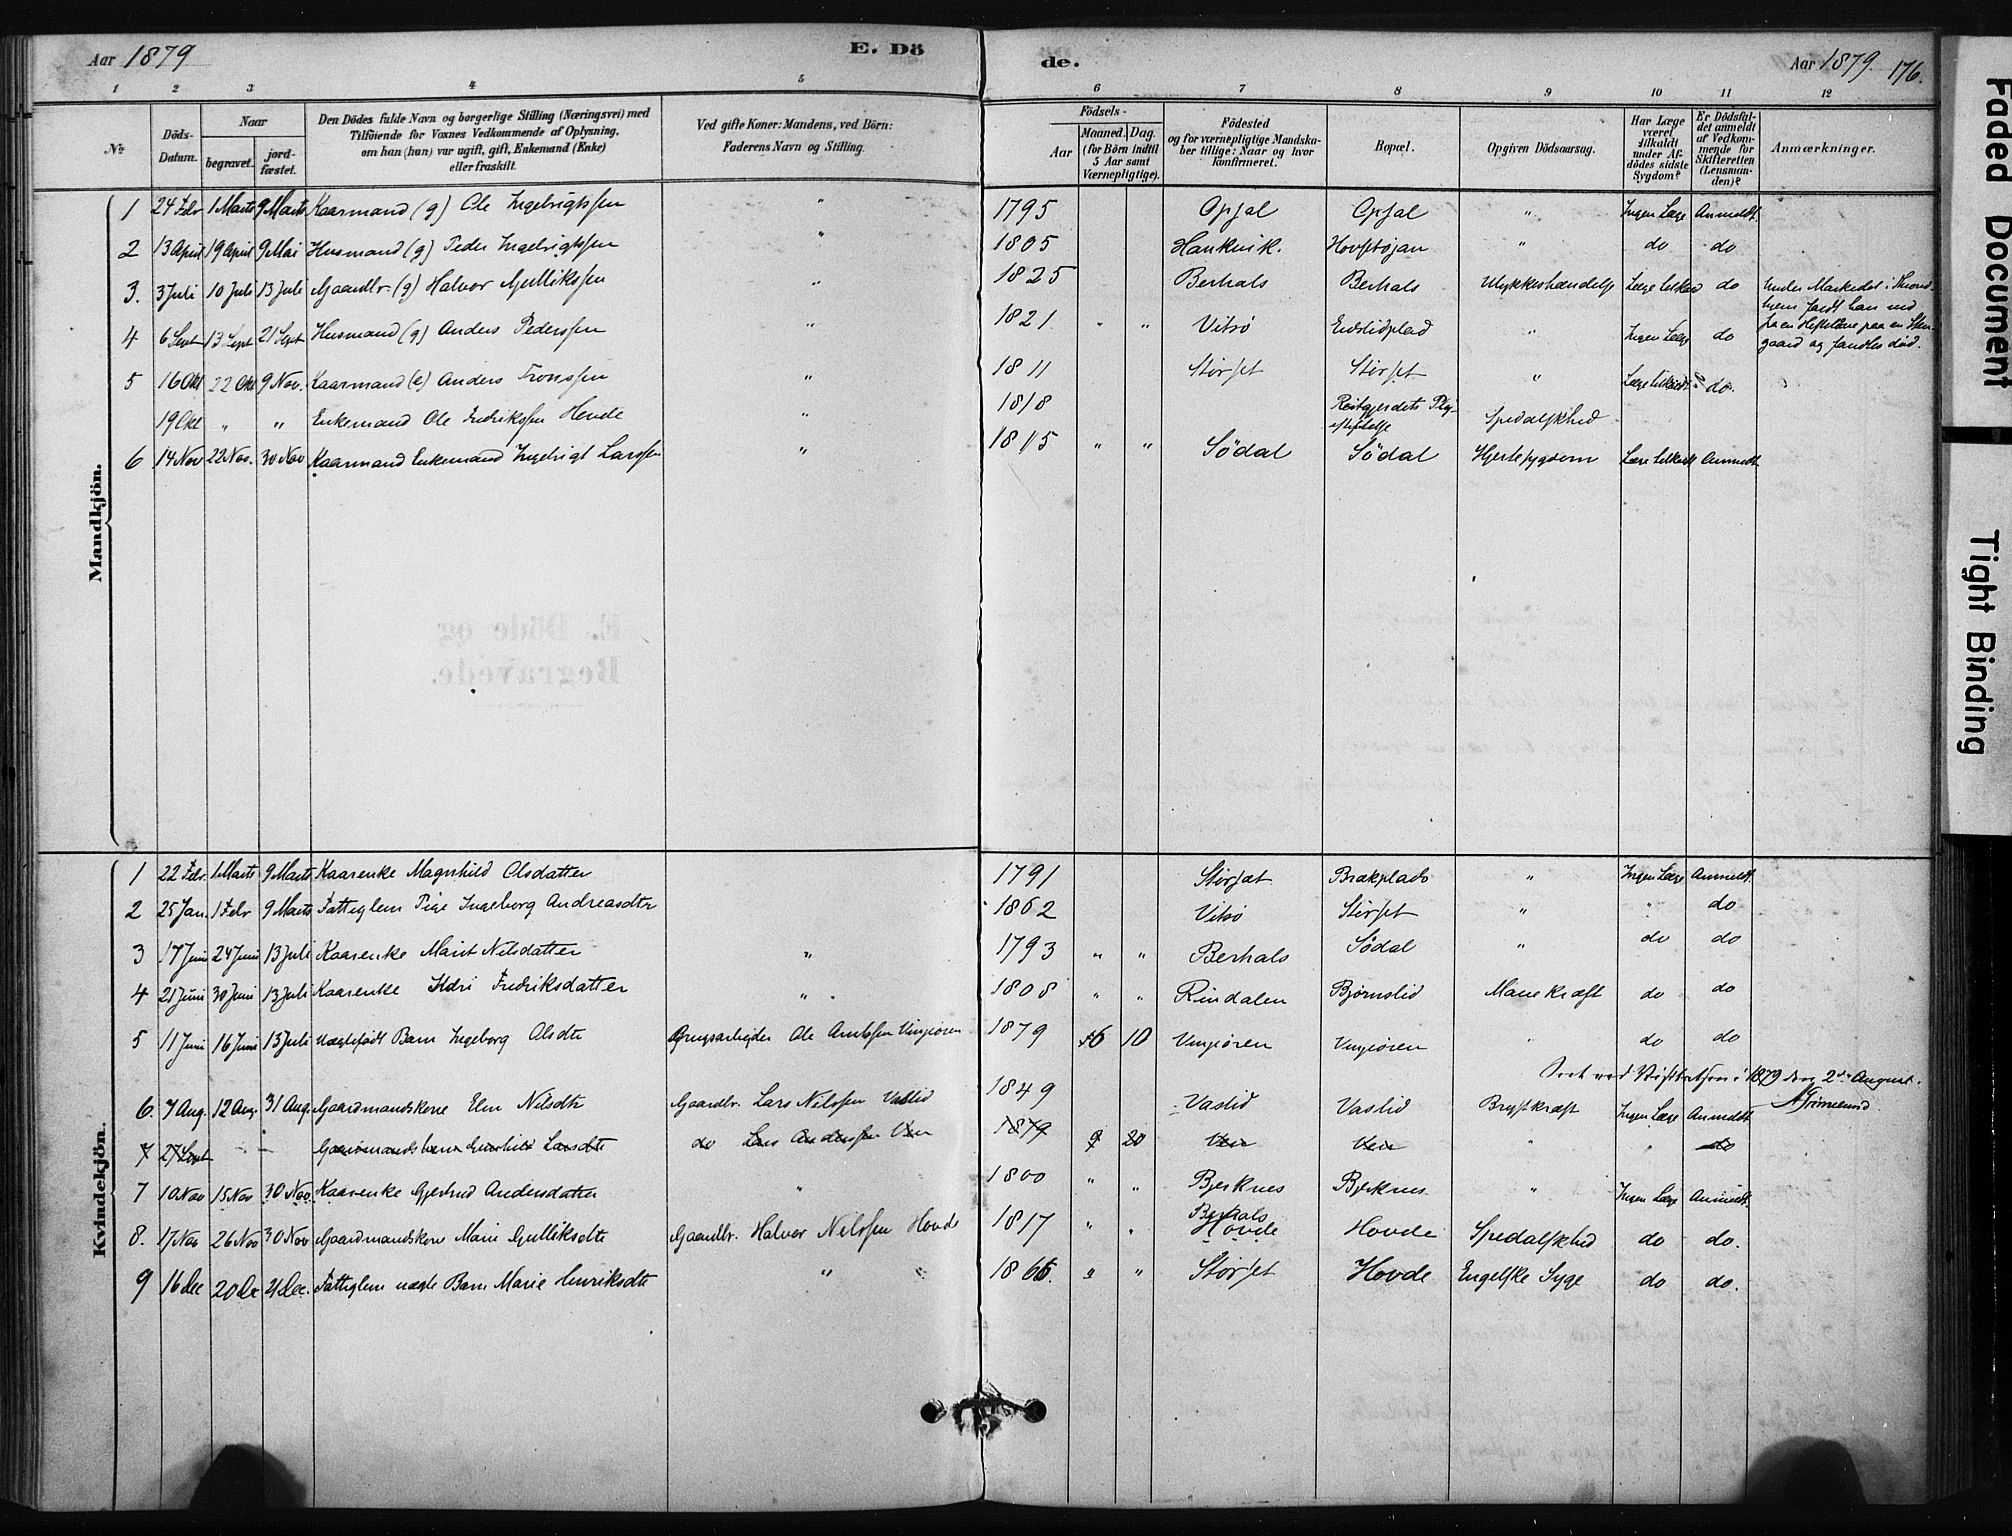 Aar 1879
E. Dö
de.
Aar 1879. 176.
1 2 3 4 5 6 7 8 9 10 11 12
№
Döds-Datum.
Naar
begravet.
jord-fæstet.
Den Dödes fulde Navn og borgerlige Stilling (Næringsvei) med
Tilföiende for Voxnes Vedkommende af Oplysning,
om han (hun) var ugift, gift, Enkemand (Enke)
eller fraskilt.
Ved gifte Koner: Mandens, ved Börn:
Faderens Navn og Stilling.
Födsels-
Aar
Maaned. Dag.
(for Börn indtil
5 Aar samt
Værnepligtige).
Födested
og for værnepligtige Mandska-
ber tillige: Naar og hvor
konfirmeret.
Bopæl.
Opgiven Dödsaarsag.
Har Læge
været
tilkaldt
under Af-
dödes sidste
Sygdom?
Er Dödsfal-
det anmeldt
af Vedkom-
mende for
Skifteretten
(Lensman-
den)?
Anmærkninger.
Mandkjön.
1 24 Febr 1 Marts 9 Marts Kaarmand (g) Ole Ingebrigtssen " 1795 Opsal Opsal " Ingen Læge Anmeldt
2 13 April 19 April 9 Mai Husmand (g) Peder Ingebrigtssen " 1805 Haukvik. Hovstøjan " do do
3. 3 Juli 10 Juli 13 Juli Gaardbr. (g) Halvor Gulliksen " 1825 Berhals Berhals Ulykkeshændelse Læge tilkald do Under Markedet i Thrond-
hjem faldt han ned
fra en paa en Sten-
gaard og fandtes død.
4 6 Sept 13 Sept 21 Sept Husmand (g) Anders Pederssen " 1821. " " Vitsø Endslidplad " Ingen Læge do
5 16 Okt 22 Okt 9 Nov. Kaarmand (e) Anders Tronssen " 1811 Størset Størset " Læge tilkaldt do.
19 Okt " " Enkemand Ole Fredrikssen Hovde " 1818 Reitgjerdets Plej-
estiftelse Spedalskhed
6 14 Nov 22 Nov. 30 Nov Kaarmand Enkemand Ingebrigt Larssen " 1815 " " Södal Södal Hjertesygdom Læge tilkaldt Anmeldt
E. Döde og
Begravede.
Kvindekjön.
1 22 Febr. 1 Marts 9 Marts Kaarenke Magnhild Olsdatter 1791 Størset Brækplads " Ingen Læge Anmeldt
2 25 Jan. 1 Febr 9 Marts Fattiglem Pige Ingeborg Andreasdtr 1862 Vitsø Størset " " do
3 17 Juni 24 Juni 13 Juli Kaarenke Marit Nilsdatter " 1793 " " Berhals Södal " do do
4 21 Juni 30 Juni 13 Juli Kaarenke Kari Fredriksdatter " 1808 " " Rindalen Bjørnslid Mavekræft do do
5 11 Juni 16 Juni 13 Juli Uægtefødt Barn Ingeborg Olsdtr Brugsarbejder Ole Arntssen Vinjeøren 1879 6 10 Vinjeøren Vinjeøren " do do
Seet ved Visitatsen i 1879 den 2den August.
AGrimelund
6. 7 Aug. 12 Aug. 31 Aug. Gaardmandskone Elen Nilsdtr Gaardbr. Lars Nilssen Vaslid 1849 Vaslid Vaslid Brystkræft Ingen Læge Anmeldt
7 27 Sept - - Gaardmandsbarn Gunhild Larsdtr do Lars Anderssen 1879 9 20 " " do
7 10 Nov 15 Nov 30 Nov. Kaarenke Gjertrud Andersdatter " 1800 " " Bjerknes Bjerknes " Ingen Læge Anmeldt
8. 17 Nov 26 Nov 30 Nov Gaardmandskone Marie Gulliksdtr Gaardbr. Halvor Nilssen Hovde 1817 " " Berhals
Hovde Hovde Spedalskhed do do.
9 16 Dec 20 Dec 21 Dec. Fattiglem uægte Barn Marie Henriksdtr " " 1866. " " Størset Hovde Engelske Syge do do.
Faded Document
Tight Binding